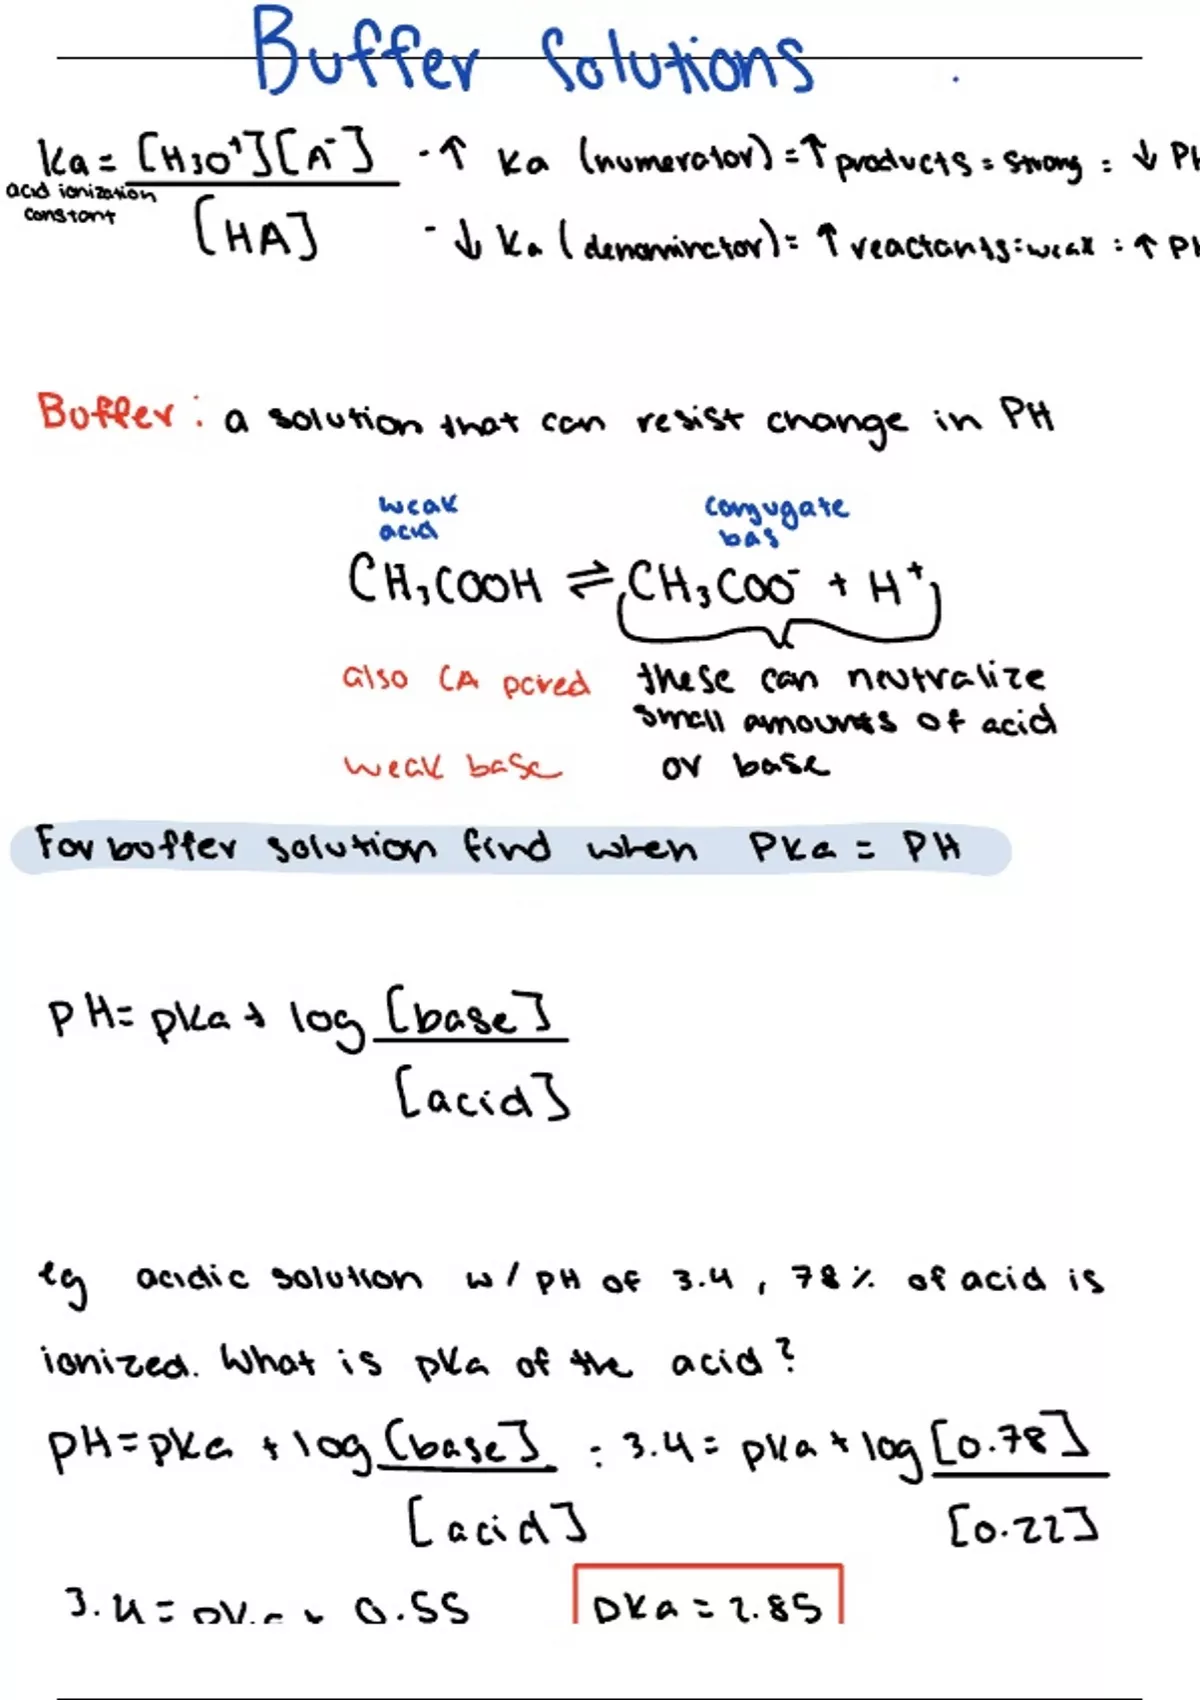 Buffer Solutions
Ka = [H3O+][A-] / [HA]
acid ionization
constant
· ↑ Ka (numerator) = ↑ products = strong = ↓ PH
· ↓ Ka (denominator) = ↑ reactants = weak = ↑ PH
Buffer: a solution that can resist change in PH
weak
acid
conjugate
bas
CH3COOH ⇌ CH3COO- + H+
also CA pared
weak base
these can neutralize
small amounts of acid
or base
For buffer solution find when PKa = PH
pH = pKa + log [base] / [acid]
eg acidic solution w/ pH of 3.4, 78% of acid is
ionized. What is pKa of the acid?
pH = pKa + log [base] / [acid] : 3.4 = pKa + log [0.78] / [0.22]
3.4 = pKa + 0.55
pKa = 2.85